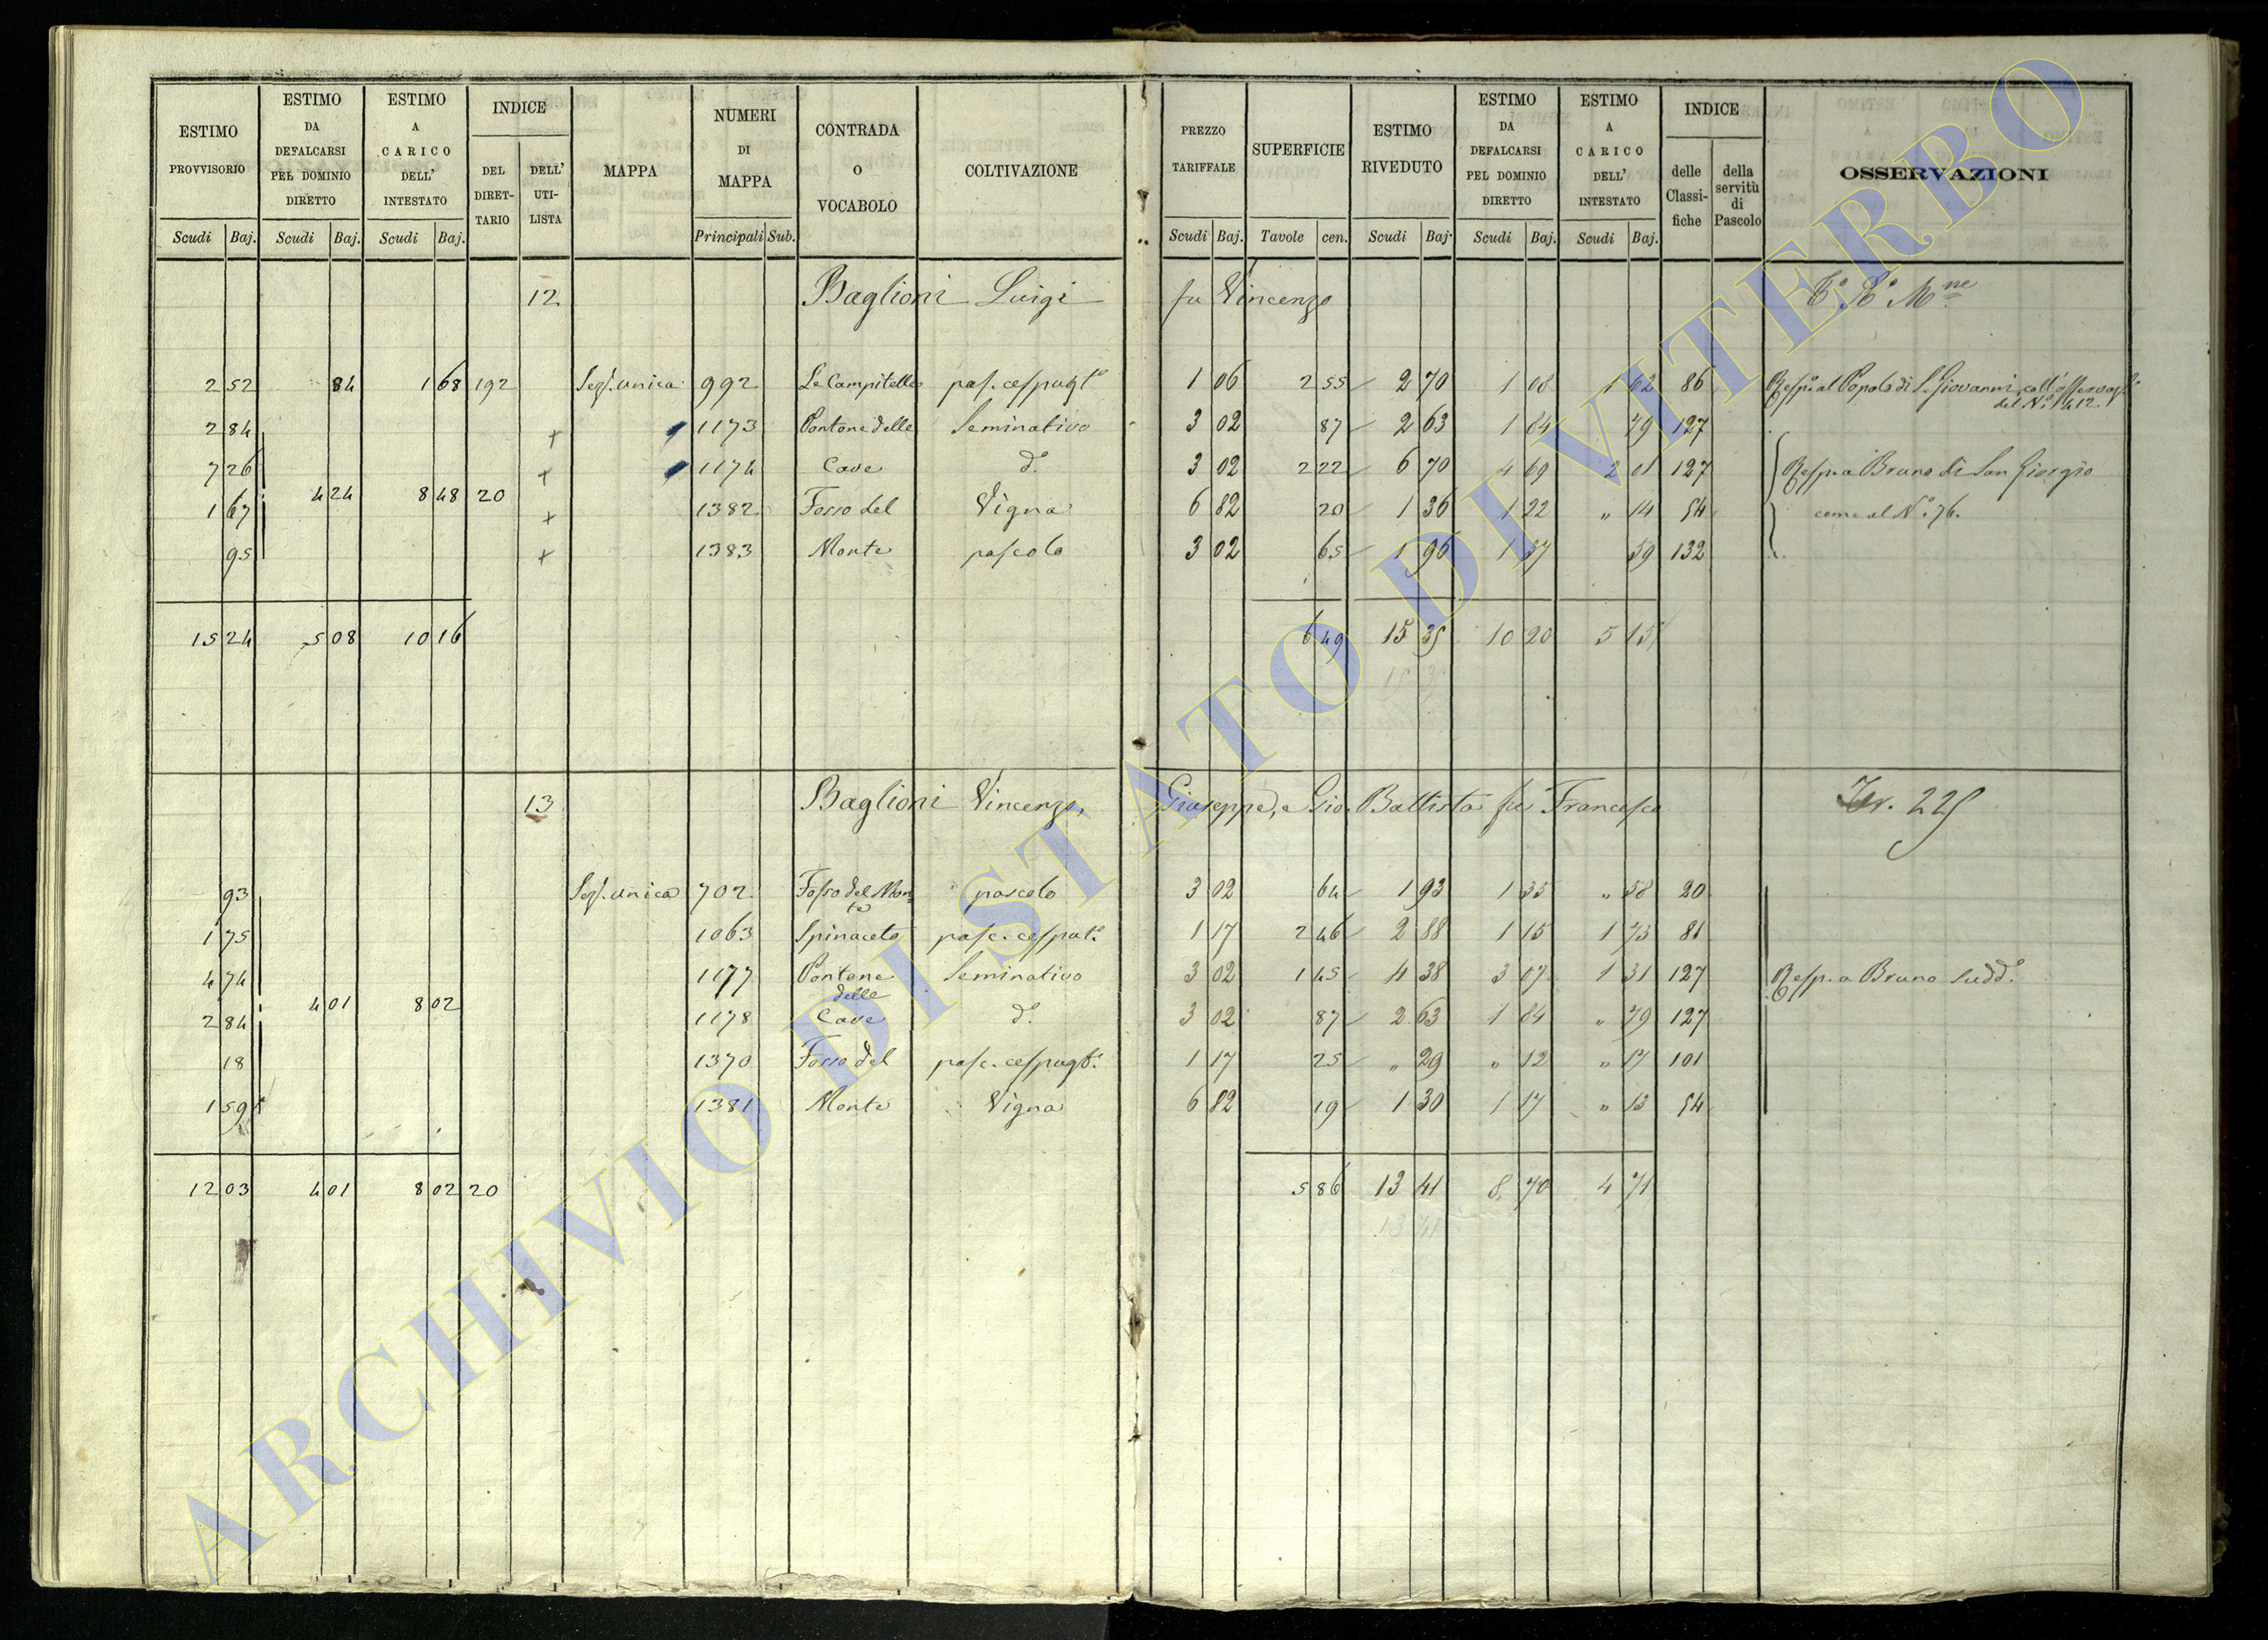 ESTIMO PROVVISORIO | ESTIMO DA DEFALCARSI PEL DOMINIO DIRETTO | ESTIMO A CARICO DELL' INTESTATO | INDICE DEL DIRET-TARIO | DELL' UTI-LISTA | MAPPA | NUMERI DI MAPPA | CONTRADA O VOCABOLO | COLTIVAZIONE | PREZZO TARIFFALE | SUPERFICIE | ESTIMO RIVEDUTO | ESTIMO DA DEFALCARSI PEL DOMINIO DIRETTO | ESTIMO A CARICO DELL' INTESTATO | INDICE delle Classi-fiche | della servitù di Pascolo | OSSERVAZIONI
Scudi Baj. | Scudi Baj. | Scudi Baj. | Principali Sub. | Scudi Baj. | Tavole cen. | Scudi Baj. | Scudi Baj. | Scudi Baj.
12 Baglioni Luigi fu Vincenzo
2 52 | 84 | 1 68 | 192 | Sez. unica | 992 | Le Campitelle | pas. cespugto | 1 06 | 2 55 | 2 70 | 1 08 | 1 62 | 86 | Resp. al Popolo di S. Giovanni
del No 1412.
2 84 | + | 1173 | Pontone delle | Seminativo | 3 02 | 87 | 2 63 | 1 84 | 79 | 127
7 26 | + | 1174 | Cave | do | 3 02 | 2 22 | 6 70 | 4 69 | 2 01 | 127 | Resp. a Bruno di San Giorgio
1 67 | 4 24 | 8 48 | 20 | + | 1382 | Fosso del | Vigna | 6 82 | 20 | 1 36 | 1 22 | " 14 | 54 | come al No 76.
95 | + | 1383 | Monte | pascolo | 3 02 | 65 | 1 96 | 1 37 | 59 | 132
15 24 | 5 08 | 10 16 | 6 49 | 15 35 | 10 20 | 5 15
13 Baglioni Vincenzo, Giuseppe, e Gio. Battista fu Francesco 225
93 | Sez. unica | 702 | Fosso del Mon-te | pascolo | 3 02 | 64 | 1 93 | 1 35 | " 58 | 20
1 75 | 1063 | Spinaceto | pasc. cesput. | 1 17 | 2 46 | 2 88 | 1 15 | 1 73 | 81
4 74 | 1177 | Pontone | Seminativo | 3 02 | 1 45 | 4 38 | 3 07 | 1 31 | 127 | Resp. a Bruno Sudd.o
4 01 | 8 02 | delle
2 84 | 1178 | Cave | do | 3 02 | 87 | 2 63 | 1 84 | " 79 | 127
18 | 1370 | Fosso del | pasc. cespugt. | 1 17 | 25 | " 29 | " 12 | " 17 | 101
1 59 | 1381 | Monte | Vigna | 6 82 | 19 | 1 30 | 1 17 | " 13 | 54
12 03 | 4 01 | 8 02 | 20 | 5 86 | 13 41 | 8 70 | 4 71
13 41
ARCHIVIO DI STATO DI VITERBO